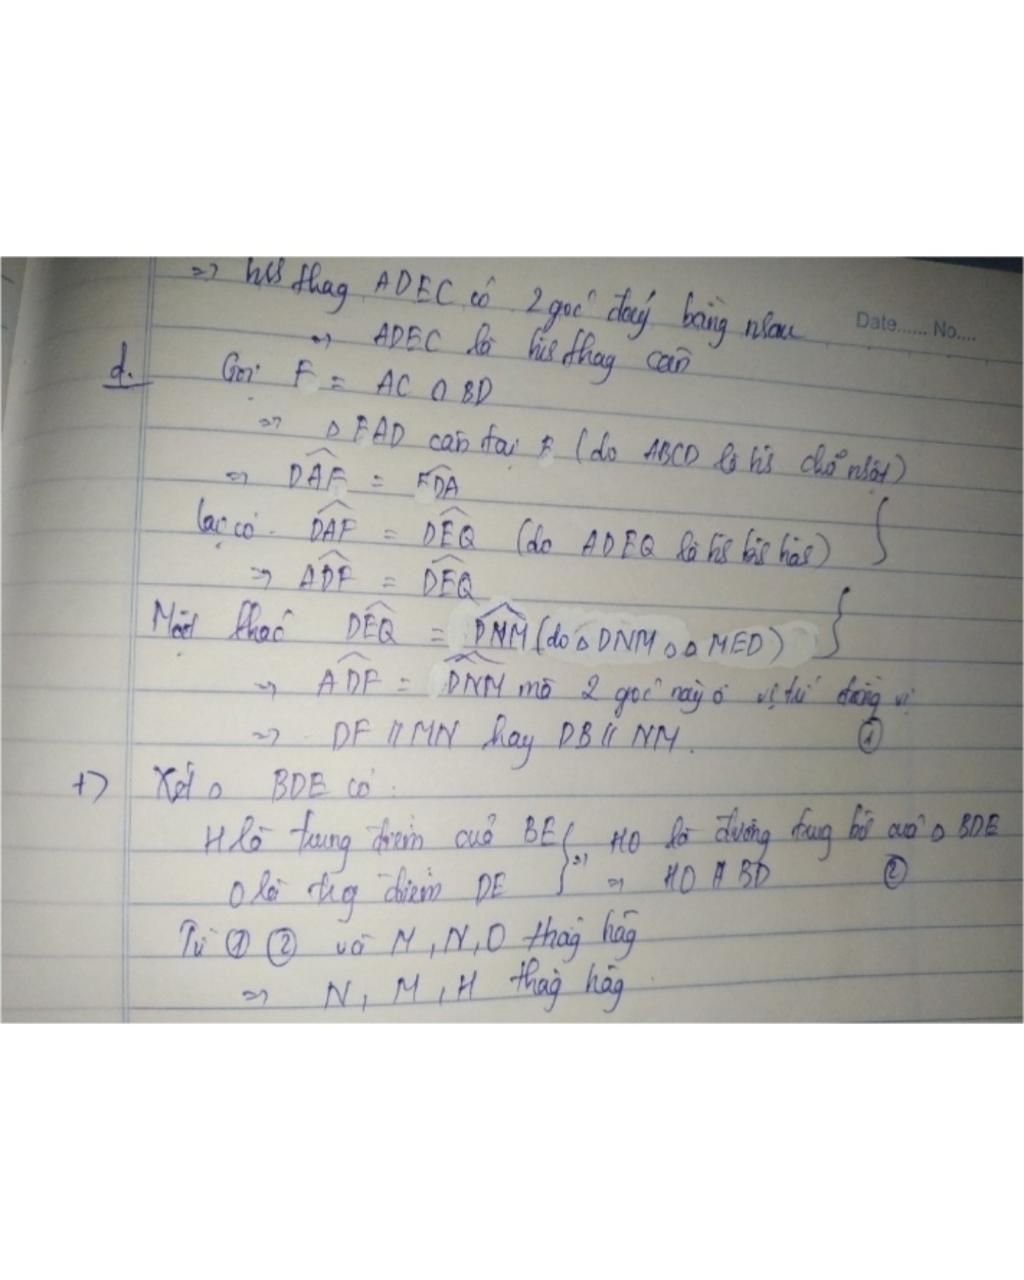 => hìh thag ADEC có 2 góc đáy bằng nhau
Date...... No....
=> ADEC là hìh thag cân
d. Gọi F = AC ∩ BD
=> Δ FAD cân tại F (do ABCD là hìh chữ nhật)
=> DAF = FDA
lại có DAF = DEQ (do ADEQ là hìh bìh hàh)
=> ADF = DEQ
Mặt khác DEQ = DNM (do Δ DNM ᔕ Δ MED)
=> ADF = DNM mà 2 góc này ở vị trí đồng vị
=> DF // MN hay DB // NM. ①
+) Xét Δ BDE có:
H là trung điểm của BE
=> HO là đường trug bìh của Δ BDE
O là trg điểm DE => HO // BD ②
Từ ① ② và M, N, O thẳg hàg
=> N, M, H thẳg hàg